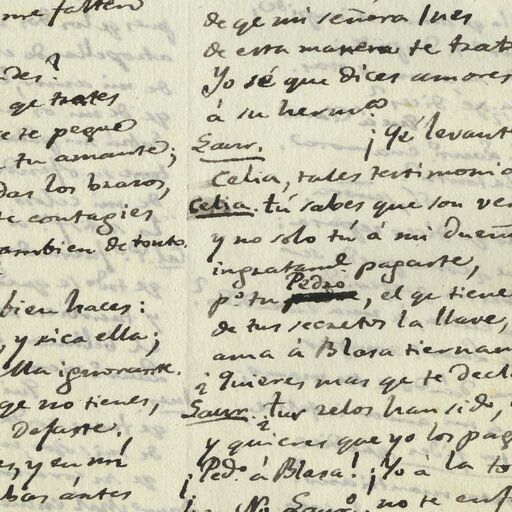 me falten
des?
qe trates
te pegue
tu amante;
das los brazos,
te contagies
tambien de tonto.
bien haces:
, y rica ella;
lla ignorante.
qe no tienes,
Dejaste.
es, y en mí
bas ántes
de qe mi señora Ines
de esta manera te trat
Yo sé que dices amores
á su hermo.
Laur. ¡Qé levant
Celia, tales testimonio
Celia. tú sabes que son ver
y no solo tú á mi dueñ
ingratame. pagaste,
po. tu Pedro, el qe tiene
de tus secretos la llave,
ama á Blasa tiernam
¿Quieres mas qe te decl
Laur. tus zelos han sido,
y quieres que yo los pag
¡Pedo. á Blasa! ¡Yo á la to
No Lauro. no te enf